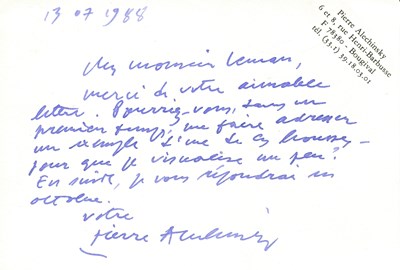 13 07 1988
Pierre Alechinsky
6 et 8, rue Henri-Barbusse
F 78380 - Bougival
tél. (33.1) 39.18.03.01
monsieur
merci de votre aimable
lettre. Pourriez-vous, dans un
premier temps, me faire adresser
un exemple d'une de ces housses -
pour que je visualise un peu?
Ensuite, je vous répondrai en
octobre.
votre
Pierre Alechinsky